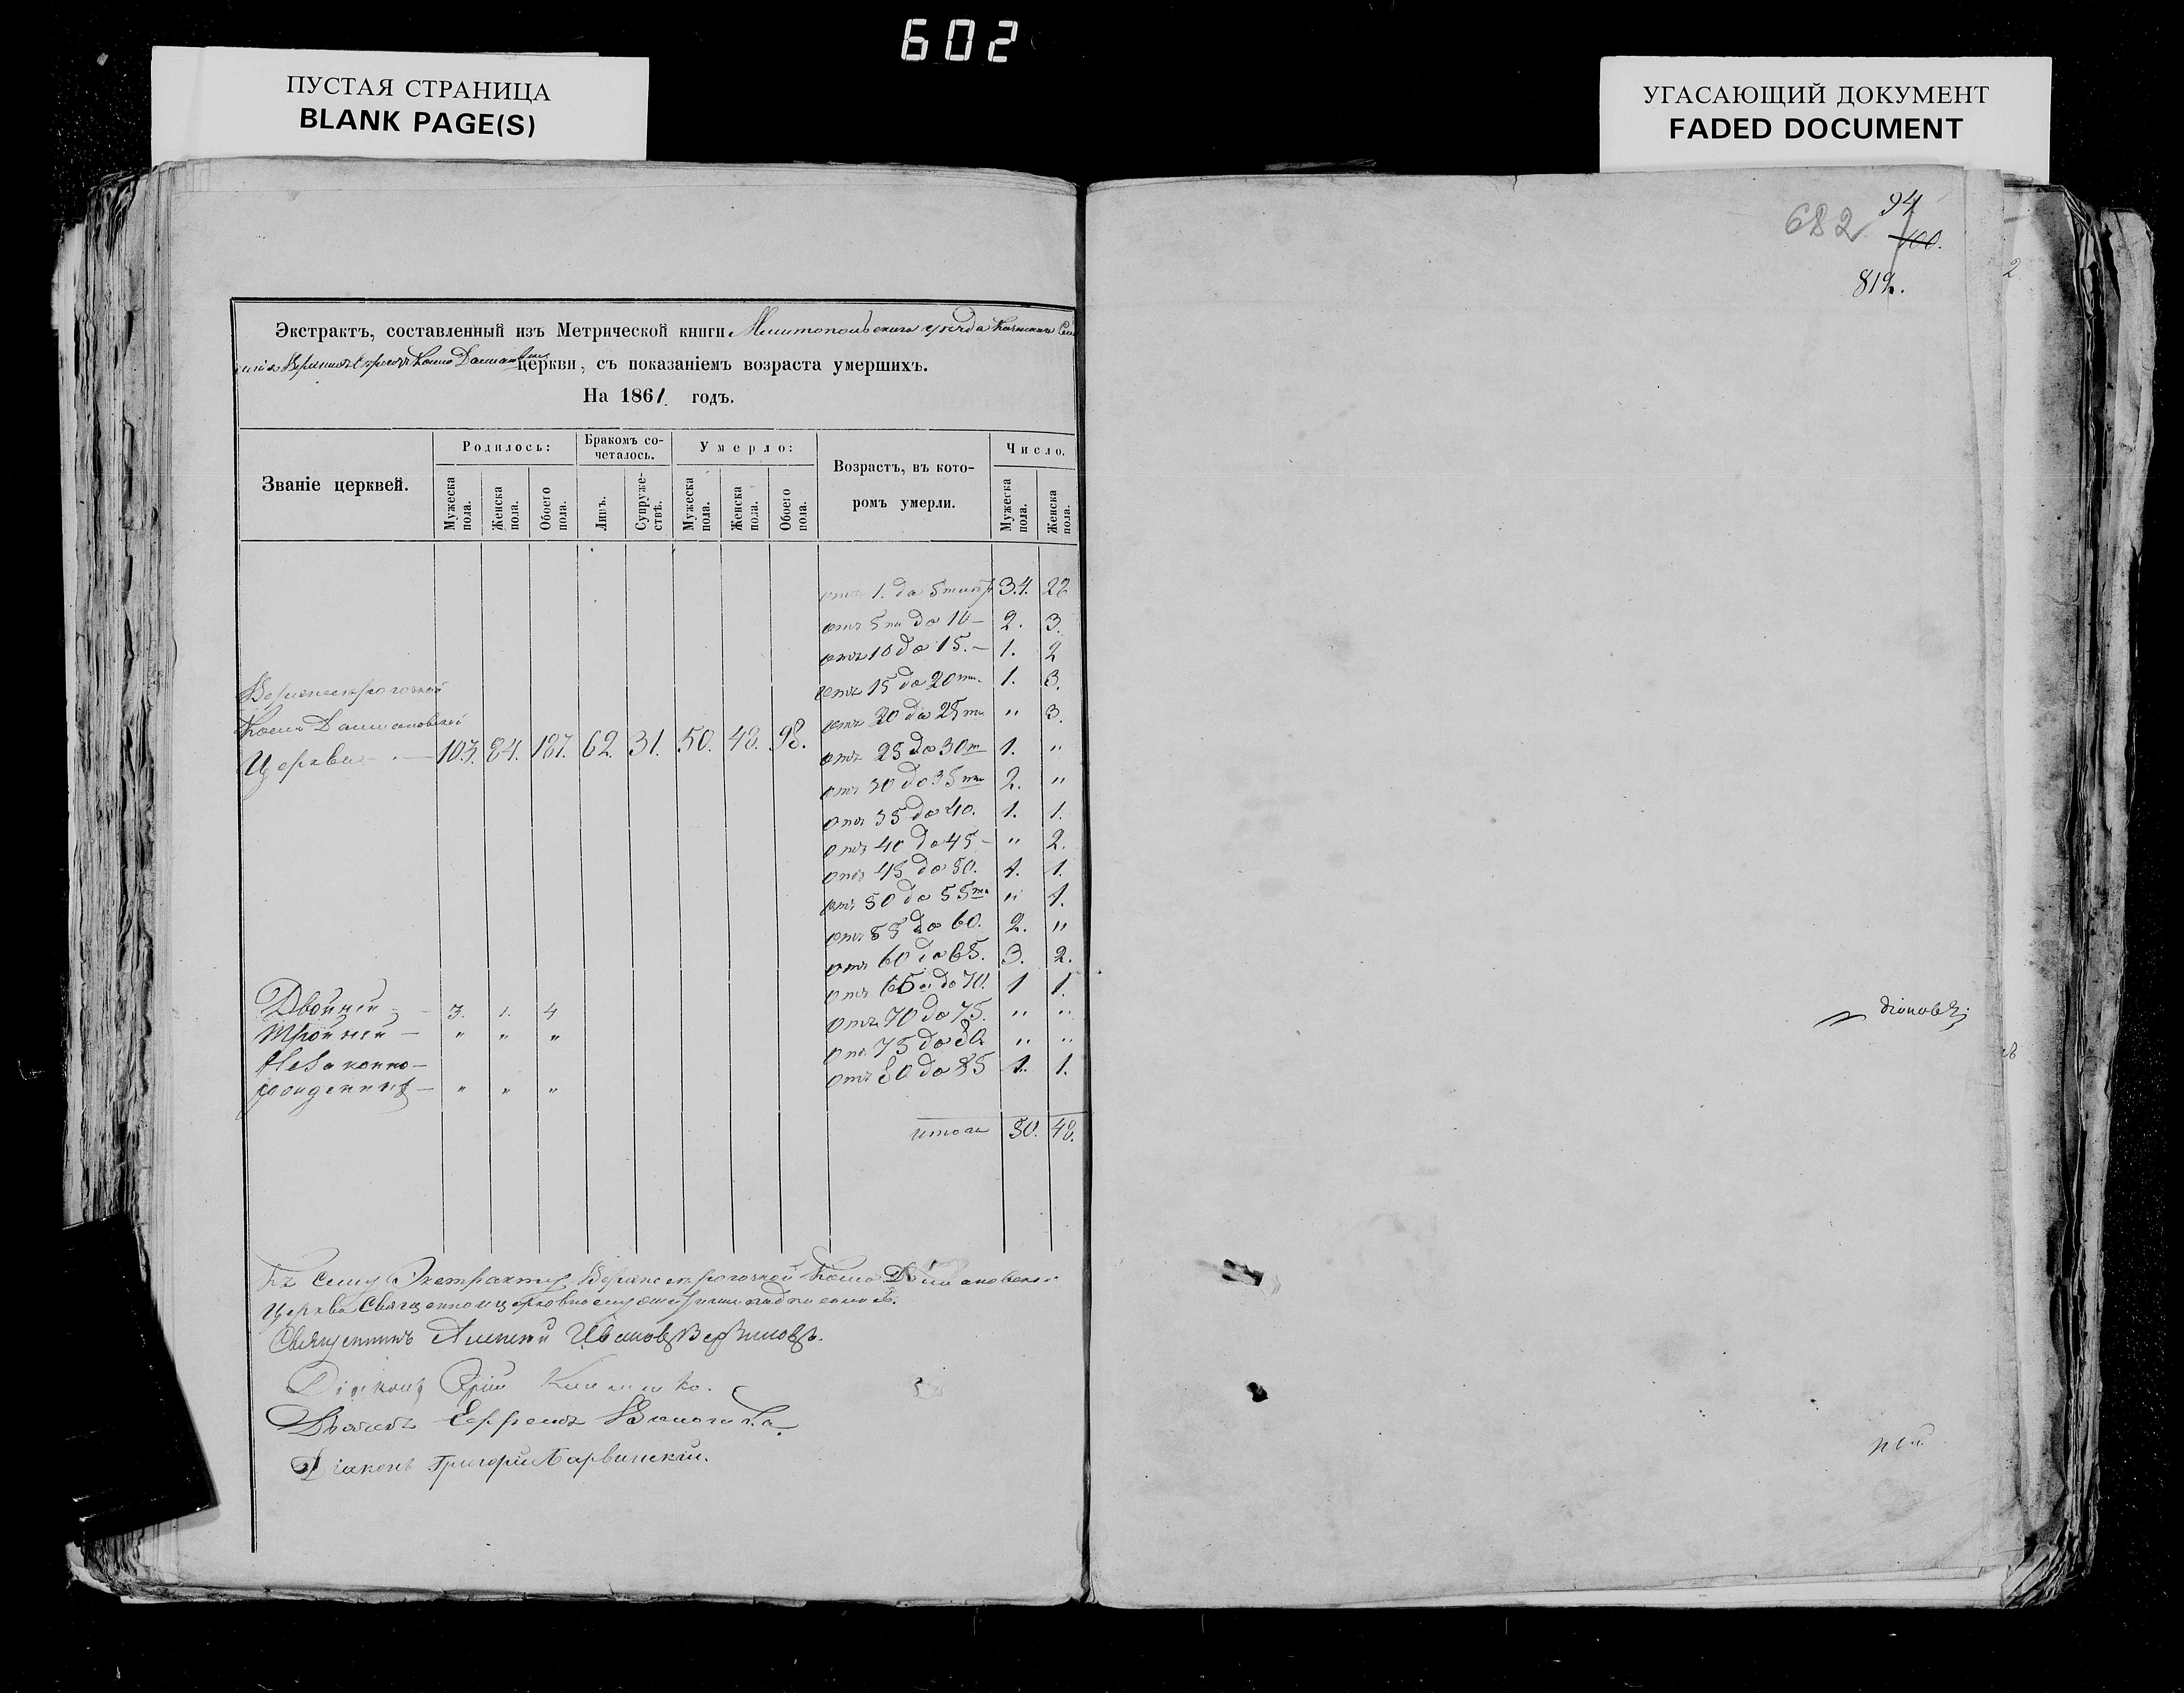 602
ПУСТАЯ СТРАНИЦА
BLANK PAGE(S)
УГАСАЮЩИЙ ДОКУМЕНТ
FADED DOCUMENT
682
94
100.
819.
Экстрактъ, составленный изъ Метрической книги Мелитопольскаго уѣзда
церкви, съ показаніемъ возраста умершихъ.
На 1861 годъ.
Званіе церквей.
Родилось:
Бракомъ сочеталось.
Умерло:
Возрастъ, въ которомъ умерли.
Число.
Мужеска пола.
Женска пола.
Обоего пола.
Лицъ.
Супружествъ.
Мужеска пола.
Женска пола.
Обоего пола.
Мужеска пола.
Женска пола.
отъ 1. до 5 34. 22
отъ 5 до 10 — 2. 3.
отъ 10 до 15. — 1. 2
отъ 15 до 20 1. 3.
отъ 20 до 25 " 3.
Церкви — 103. 84. 187. 62. 31. 50. 48. 98.
отъ 25 до 30 1. "
отъ 30 до 35 2. "
отъ 35 до 40. 1. 1.
отъ 40 до 45 — " 2.
отъ 45 до 50. 1. 1.
отъ 50 до 55 " 1.
отъ 55 до 60. 2. "
отъ 60 до 65. 3. 2.
отъ 65 до 70. 1 1.
Двойней — 3. 1. 4
отъ 70 до 75. " "
Тройней — " " "
отъ 75 до 80. " "
Незаконно—
рожденныхъ — " " "
отъ 80 до 85 1. 1.
итого 50. 48.
Къ сему Экстракту
Церкви
Священникъ Алексѣй Ивановъ
Діаконъ
Дьячекъ Ефремъ
Діаконъ Григорій Барвинскій.